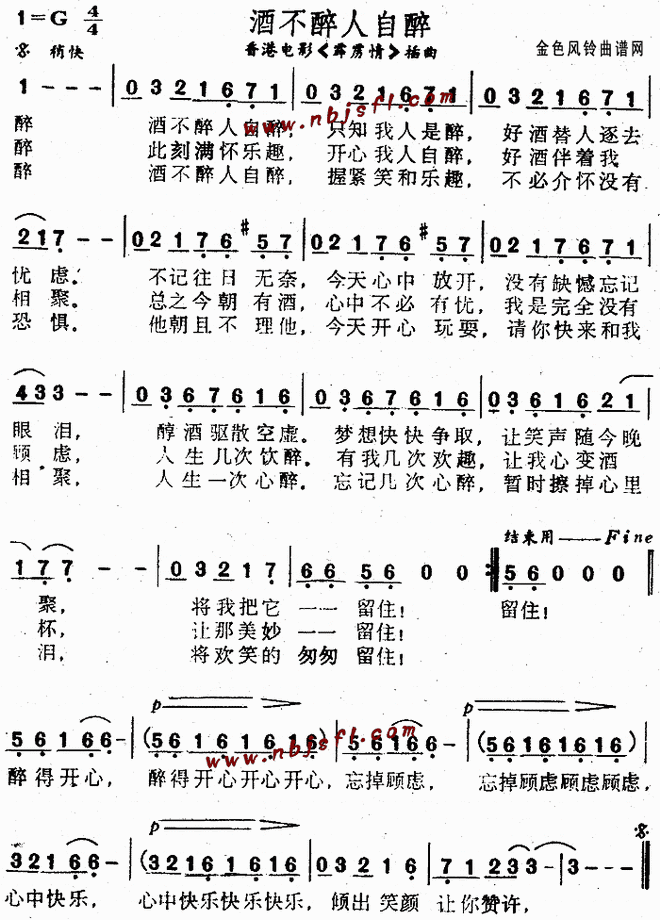 酒不醉人自醉
1=G 4/4
稍快
香港电影《霹雳情》插曲
金色风铃曲谱网
1 - - - | 0 3 2 1 6 7 1 | 0 3 2 1 6 7 1 | 0 3 2 1 6 7 1 |
醉 酒不醉人自醉, 只知我人是醉, 好酒替人逐去
醉 此刻满怀乐趣, 开心我人自醉, 好酒伴着我
醉 酒不醉人自醉, 握紧笑和乐趣, 不必介怀没有
2 1 7 - - | 0 2 1 7 6 #5 7 | 0 2 1 7 6 #5 7 | 0 2 1 7 6 7 1 |
忧虑. 不记往日无奈, 今天心中放开, 没有缺憾忘记
相聚. 总之今朝有酒, 心中不必有忧, 我是完全没有
恐惧. 他朝且不理他, 今天开心玩耍, 请你快来和我
4 3 3 - - | 0 3 6 7 6 1 6 | 0 3 6 7 6 1 6 | 0 3 6 1 6 2 1 |
眼泪, 醇酒驱散空虚. 梦想快快争取, 让笑声随今晚
顾虑, 人生几次饮醉. 有我几次欢趣, 让我心变酒
相聚, 人生一次心醉. 忘记几次心醉, 暂时擦掉心里
结束用——Fine
1 7 7 - - | 0 3 2 1 7 | 6 6 5 6 0 0 :| 5 6 0 0 0 |
聚, 将我把它 —— 留住! 留住!
杯, 让那美妙 —— 留住!
泪, 将欢笑的 匆匆 留住!
p p
5 6 1 6 6 - | (5 6 1 6 1 6 1 6) | 5 6 1 6 6 - | (5 6 1 6 1 6 1 6) |
醉得开心, 醉得开心开心开心, 忘掉顾虑, 忘掉顾虑顾虑顾虑,
p
3 2 1 6 6 - | (3 2 1 6 1 6 1 6) | 0 3 2 1 6 | 7 1 2 3 3 - | 3 - - - |
心中快乐, 心中快乐快乐快乐, 倾出笑颜 让你赞许,
www.nbjsfl.com
www.nbjsfl.com